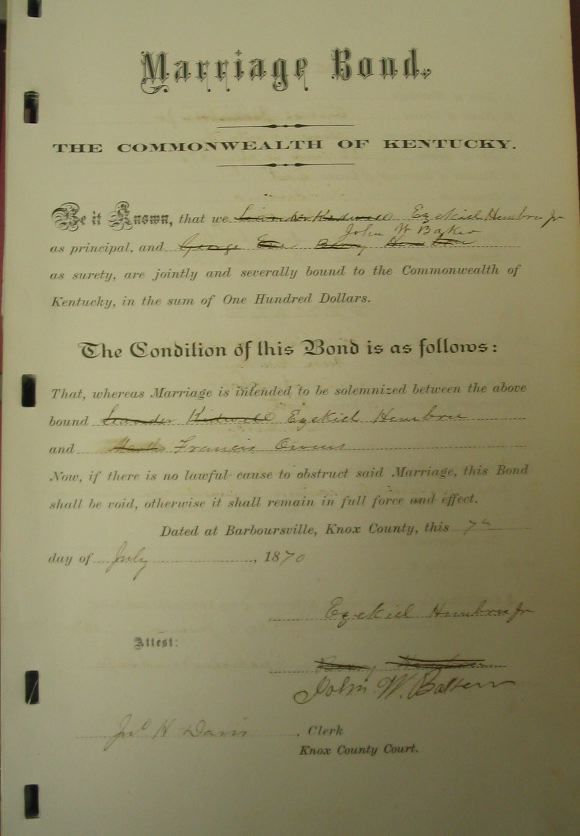 Marriage Bond.
THE COMMONWEALTH OF KENTUCKY.
Be it Known, that we Ezekiel Hembree Jr
John W B
as principal, and George
as surety, are jointly and severally bound to the Commonwealth of
Kentucky, in the sum of One Hundred Dollars.
The Condition of this Bond is as follows:
That, whereas Marriage is intended to be solemnized between the above
bound Leander Kidwell Ezekiel Hembree
and Francis Owens
Now, if there is no lawful cause to obstruct said Marriage, this Bond
shall be void, otherwise it shall remain in full force and effect.
Dated at Barboursville, Knox County, this 7th
day of July, 1870
Ezekiel Hembree Jr
Attest:
John W.
Jno H Davis, Clerk
Knox County Court.